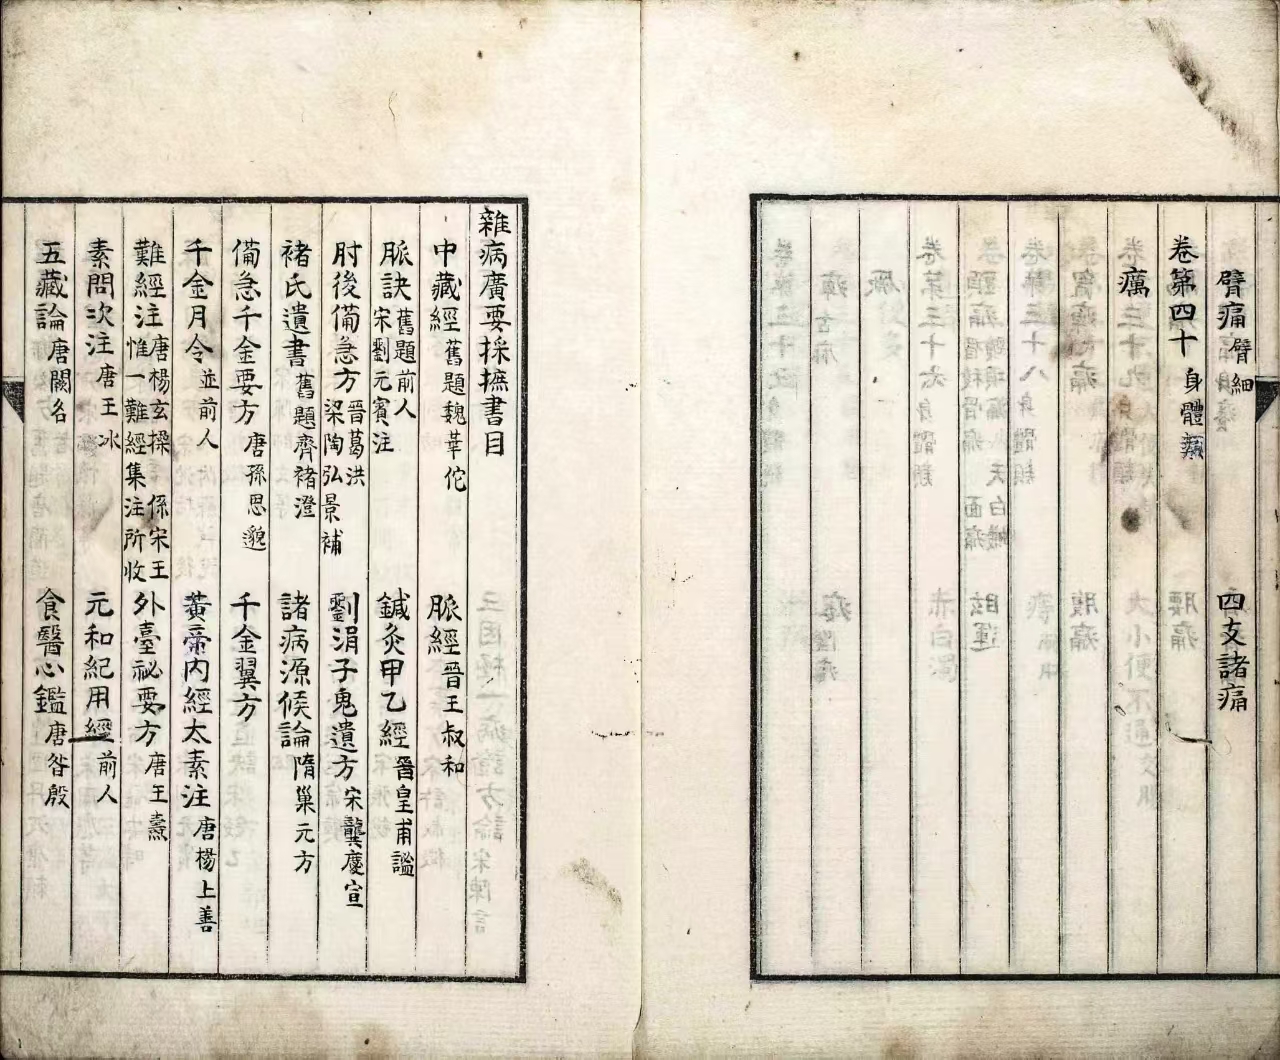 臂痛臂細 四支諸痛
卷第四十 身體類
癘
雜病廣要採摭書目
中藏經舊題魏華佗 脈經晉王叔和
脈訣舊題前人宋劉元賓注 鍼灸甲乙經晉皇甫謐
肘後備急方晉葛洪梁陶弘景補 劉涓子鬼遺方宋龔慶宣
褚氏遺書舊題齊褚澄 諸病源候論隋巢元方
備急千金要方唐孫思邈 千金翼方
千金月令並前人 黃帝內經太素注唐楊上善
難經注唐楊玄操 係宋王惟一難經集注所收 外臺祕要方唐王燾
素問次注唐王冰 元和紀用經前人
五藏論唐闕名 食醫心鑑唐昝殷